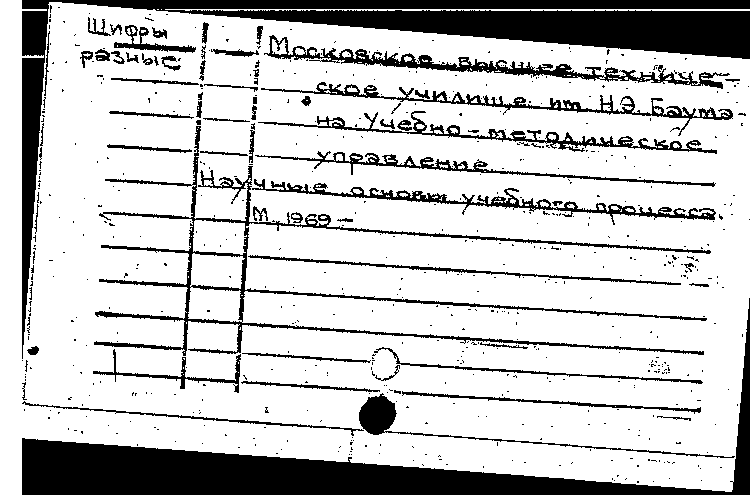 Шифры
разные
Московское высшее техниче-
ское училище им Н.Э. Баума-
на. Учебно-методическое
управление.
Научные основы учебного процесса.
М., 1969 –